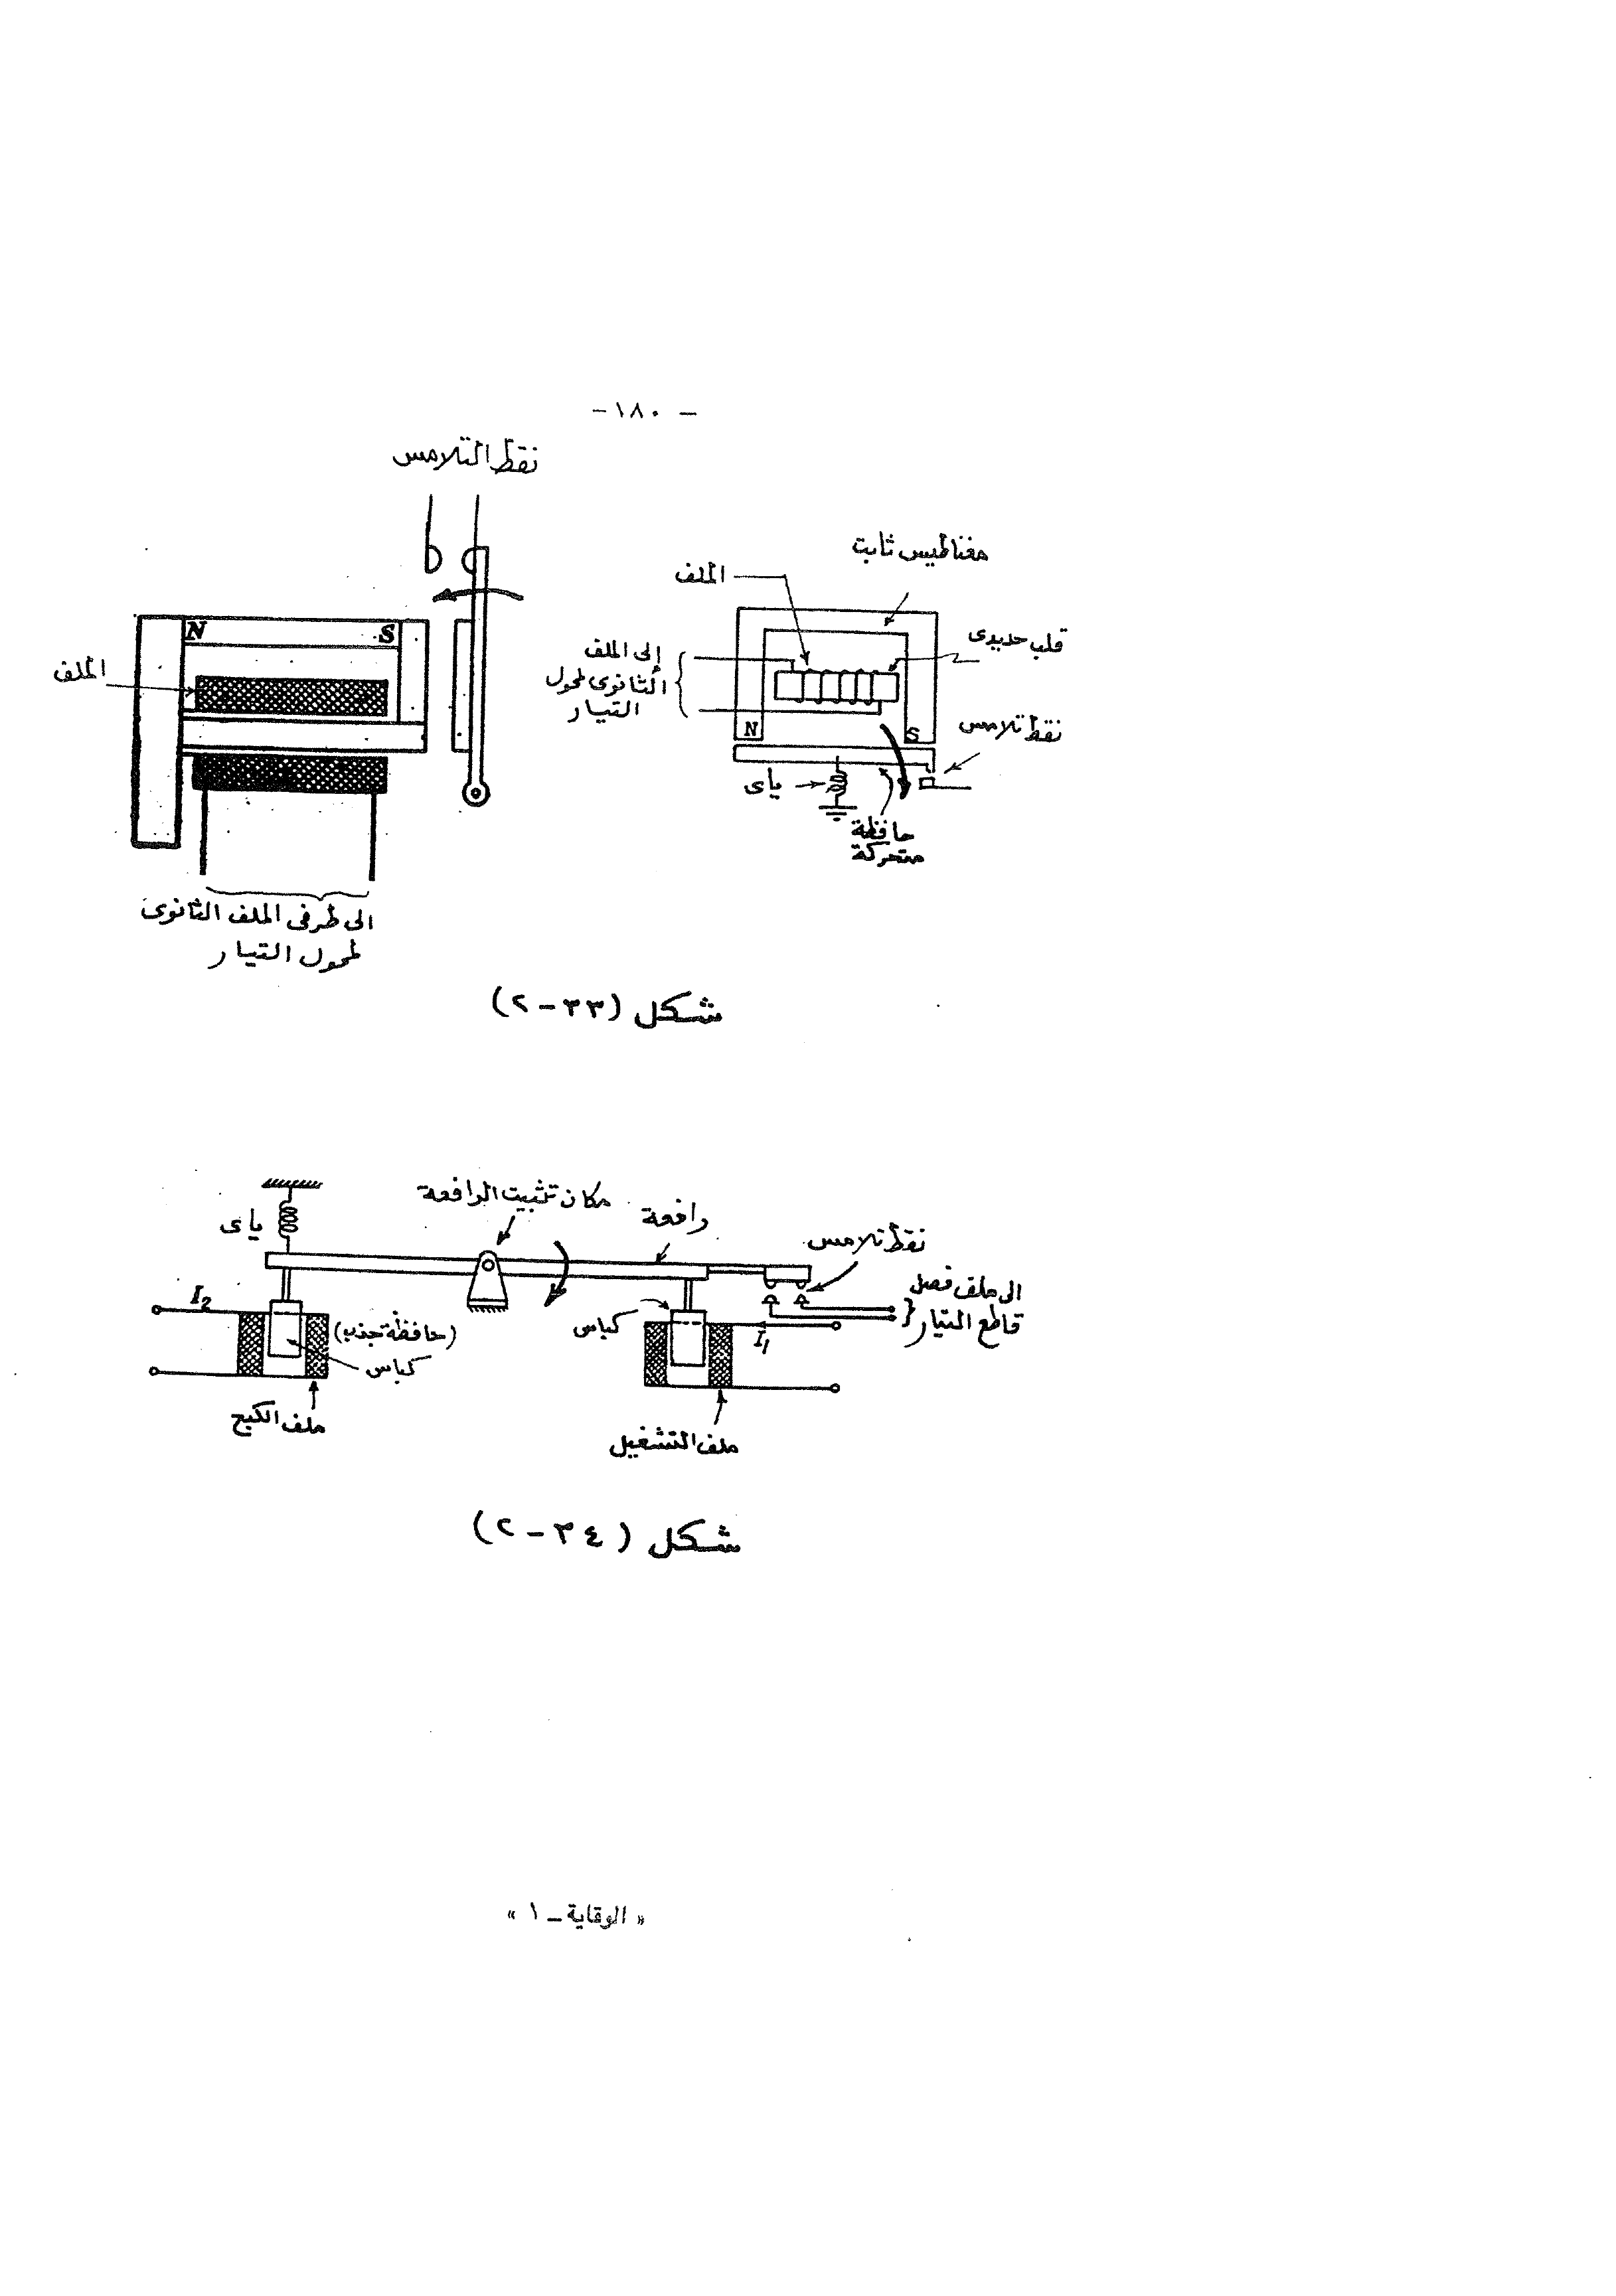 - ١٨٠ -
نقط التلامس
N
S
الملف
الى طرفى الملف الثانوى
لمحول التيار
مغناطيس ثابت
الملف
قلب حديدى
إلى الملف
الثانوى لمحول
التيار
N
S
نقط تلامس
ياى
حافظة
متحركة
شكل (٣٣-٢)
مكان تثبيت الرافعة
رافعة
ياى
نقط تلامس
الى ملف فصل
قاطع التيار
I₂
(حافظة جذب)
كباس
كباس
I₁
ملف الكبح
ملف التشغيل
شكل (٣٤-٢)
« الوقاية - ١ »